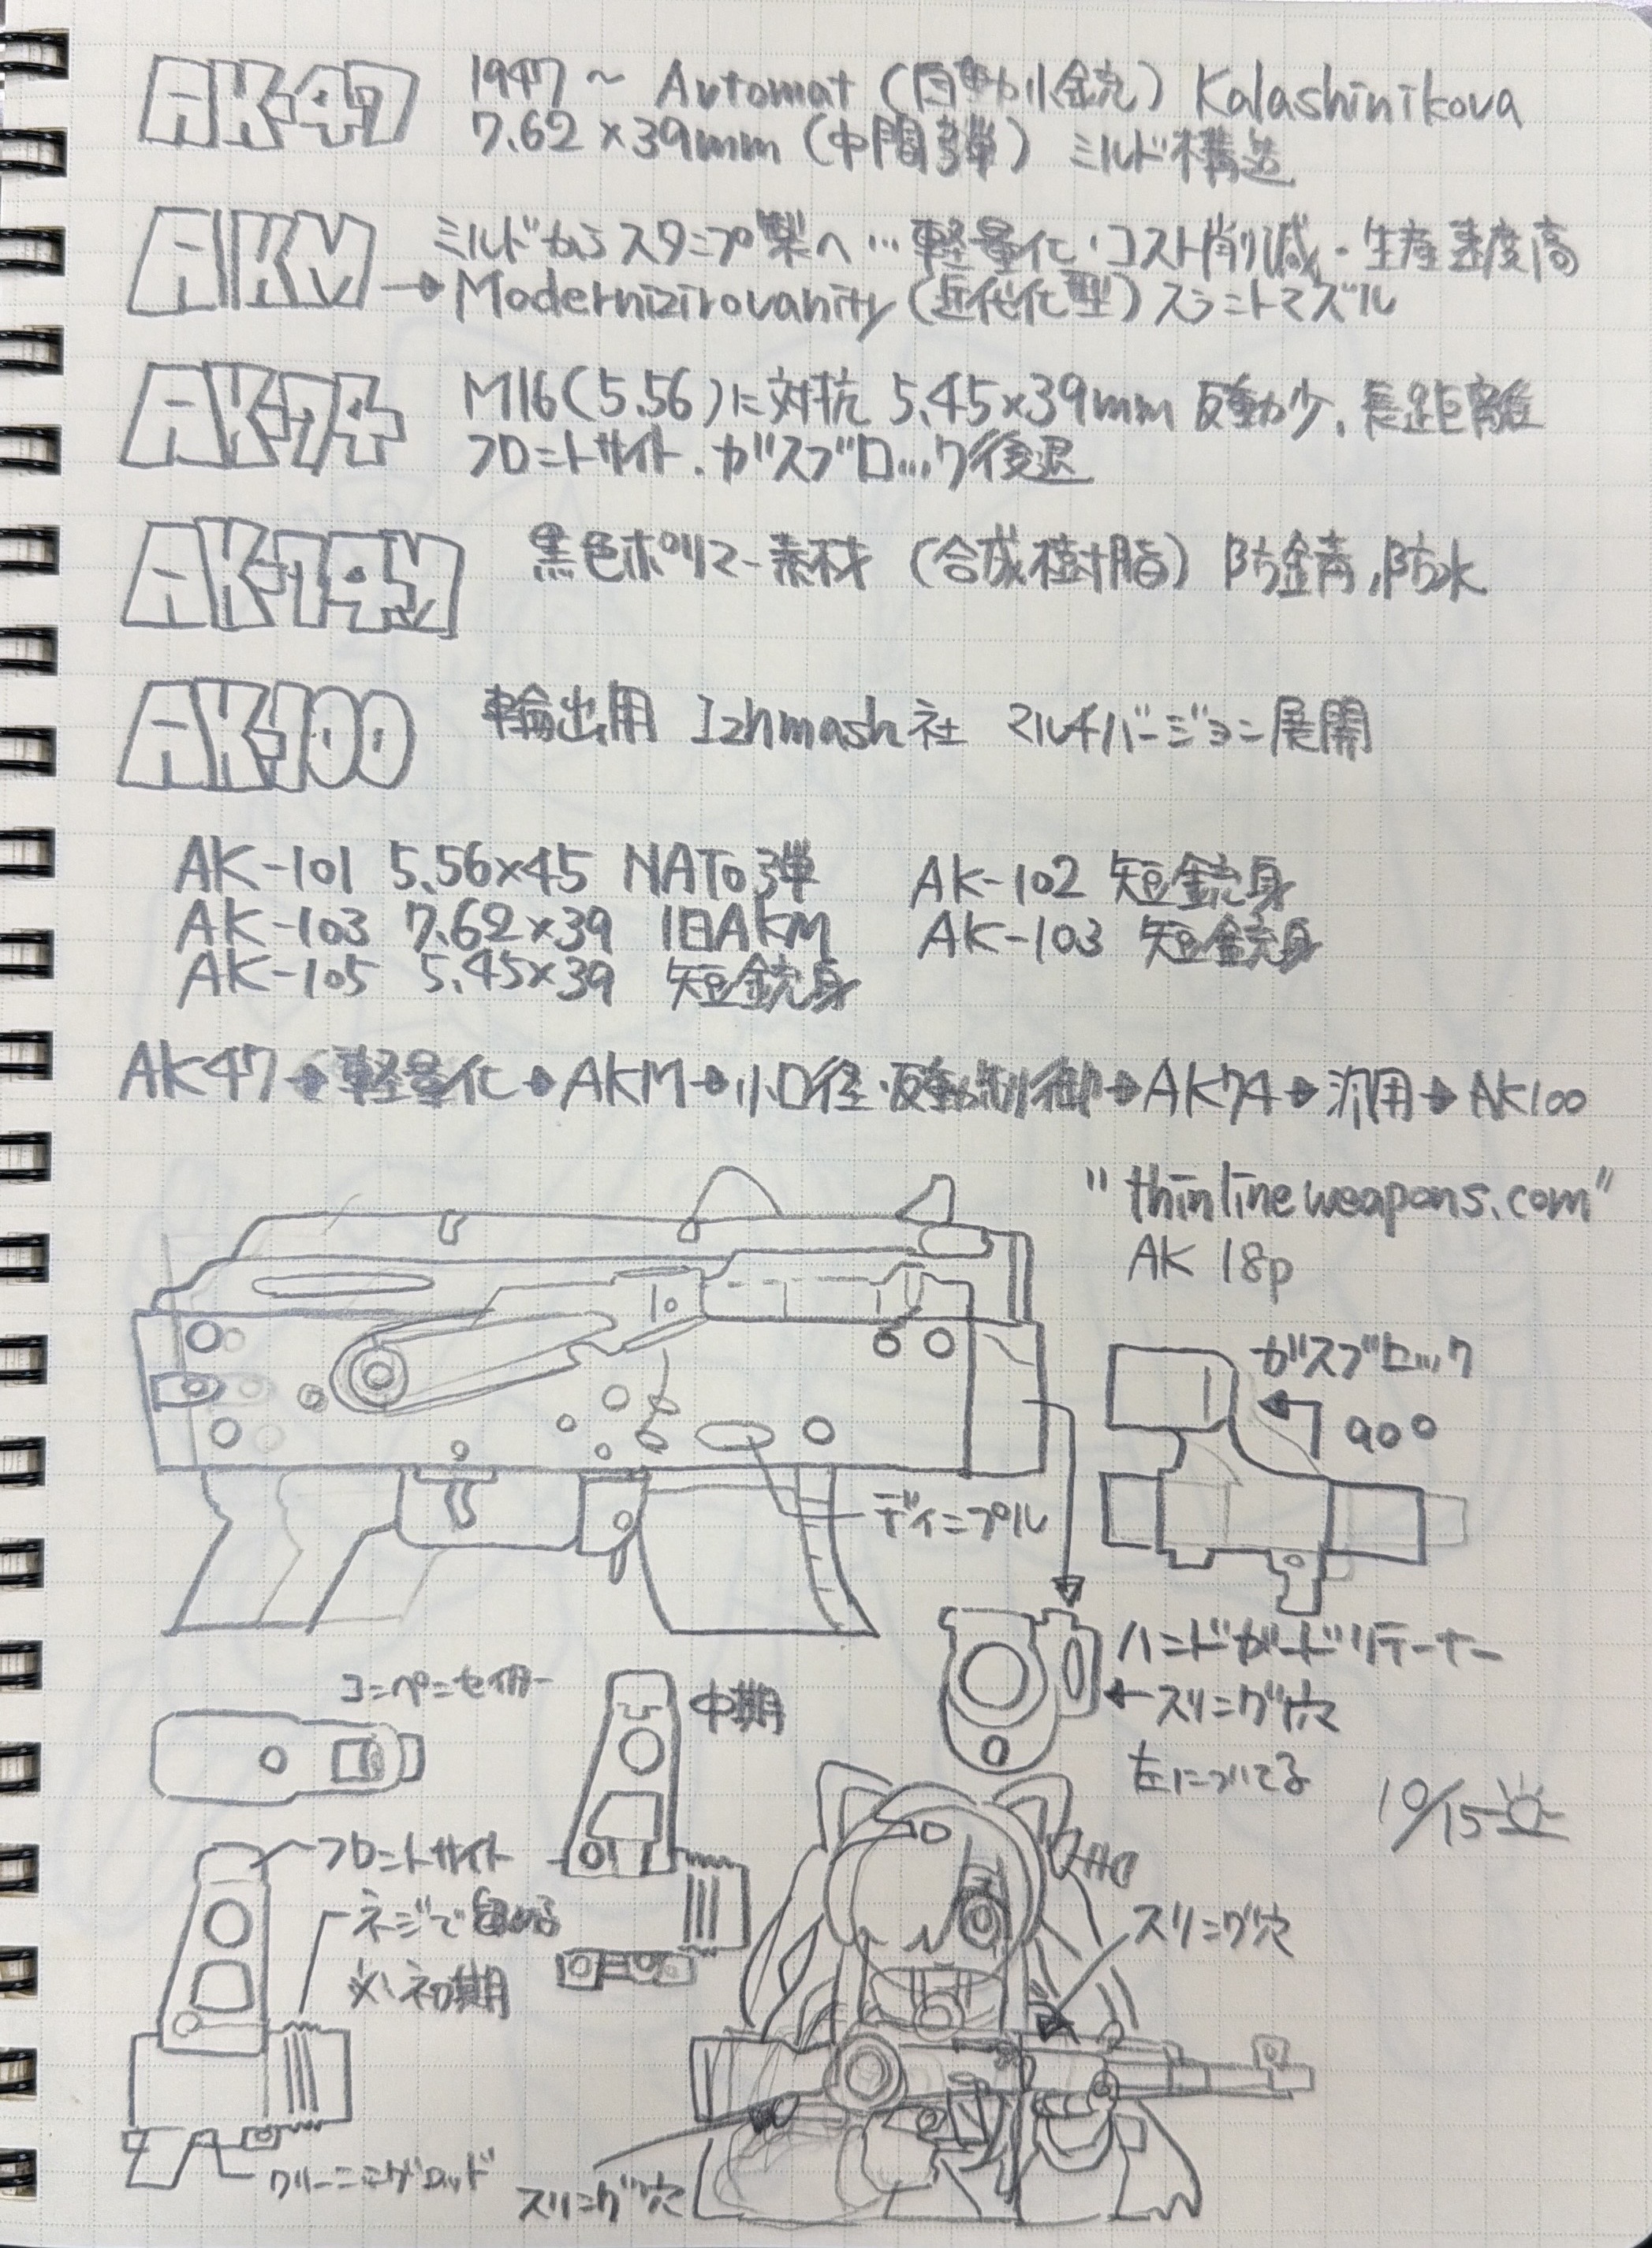 AK47
1947～ Automat（自動小銃）Kalashinikova
7.62×39mm（中間弾）ミルド構造
AKM
ミルドからスタンプ製へ…軽量化・コスト削減・生産速度高
→Modernizirovanity（近代化型）スラントマズル
AK74
M16（5.56）に対抗 5.45×39mm 反動少、長距離
フロントサイト、ガスブロック後退
AK74M
黒色ポリマー素材（合成樹脂）防錆、防水
AK100
輸出用 Izhmash社 マルチバージョン展開
AK-101 5.56×45 NATO弾 AK-102 短銃身
AK-103 7.62×39 旧AKM AK-103 短銃身
AK-105 5.45×39 短銃身
AK47→軽量化→AKM→小口径・反動制御→AK74→汎用→AK100
"thinlineweapons.com"
AK 18p
ガスブロック
90°
ディンプル
ハンドガードリテーナー
←スリング穴
左についてる
コンペンセイター
中期
10/15
フロントサイト
ネジで留める
※初期
スリング穴
クリーニングロッド
スリング穴